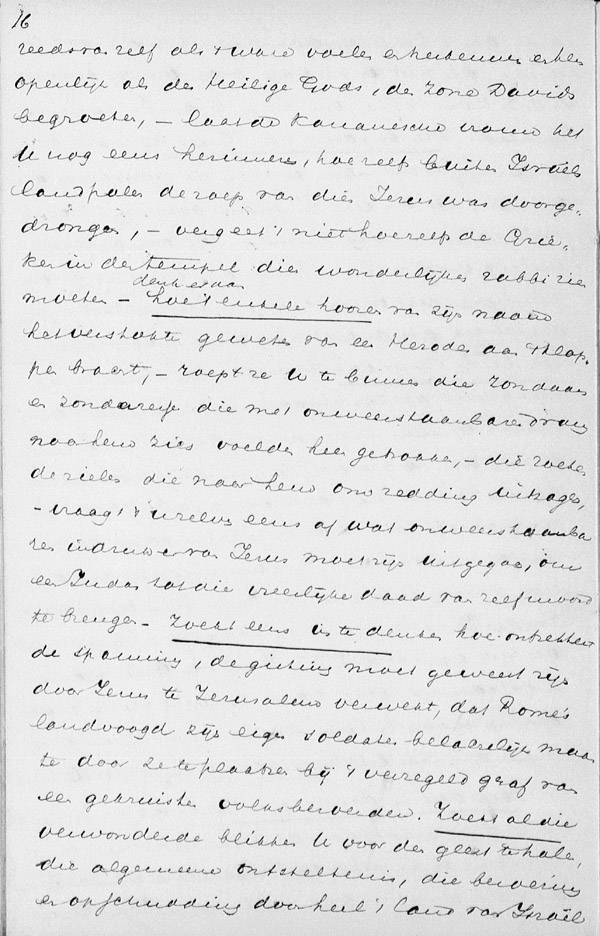 16
reeds van zelf als 't ware voelen en herkennen en hem
openlijk als den Heilige Gods, den Zone Davids
begroeten, – laat de Kananesche vrouw het
U nog eens herinneren, hoe zelfs buiten Israëls
landpalen de roep van dien Jezus was doorge-
drongen, – vergeet 't niet hoe zelfs de Grie-
ken in den tempel dien wonderlijken rabbi zien
denk er aan
moeten – hoe 't enkele hooren van zijn naam
het verstokte geweten van een Herodes aan 't klop-
pen bracht, – roept ze U te binnen die zondaars
en zondaressen die met onweerstaanbaren drang
naar hem zich voelden heen getrokken, – die zoeken
de zielen die naar hem om redding uitzagen,
– vraagt 't U zelven eens af wat onweerstaanba
ren indruk er van Jezus moet zijn uitgegaan, om
een Judas tot die vreeselijke daad van zelfmoord
te brengen – Zoekt eens in te denken hoe ontzettend
de spanning, de gisting moet geweest zijn
door Jezus te Jeruzalem verwekt, dat Rome's
landvoogd zijn eigen soldaten belachelijk maak
te door ze te plaatsen bij 't verzegeld graf van
een gekruisten volksberoerder. Zoekt al die
verwonderde blikken U voor den geest te halen,
die algemeene ontsteltenis, die beroering
en opschudding door heel 't land van Israël